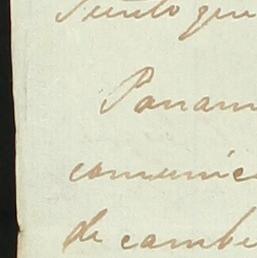 siento que
Panam
comunica
de cambi